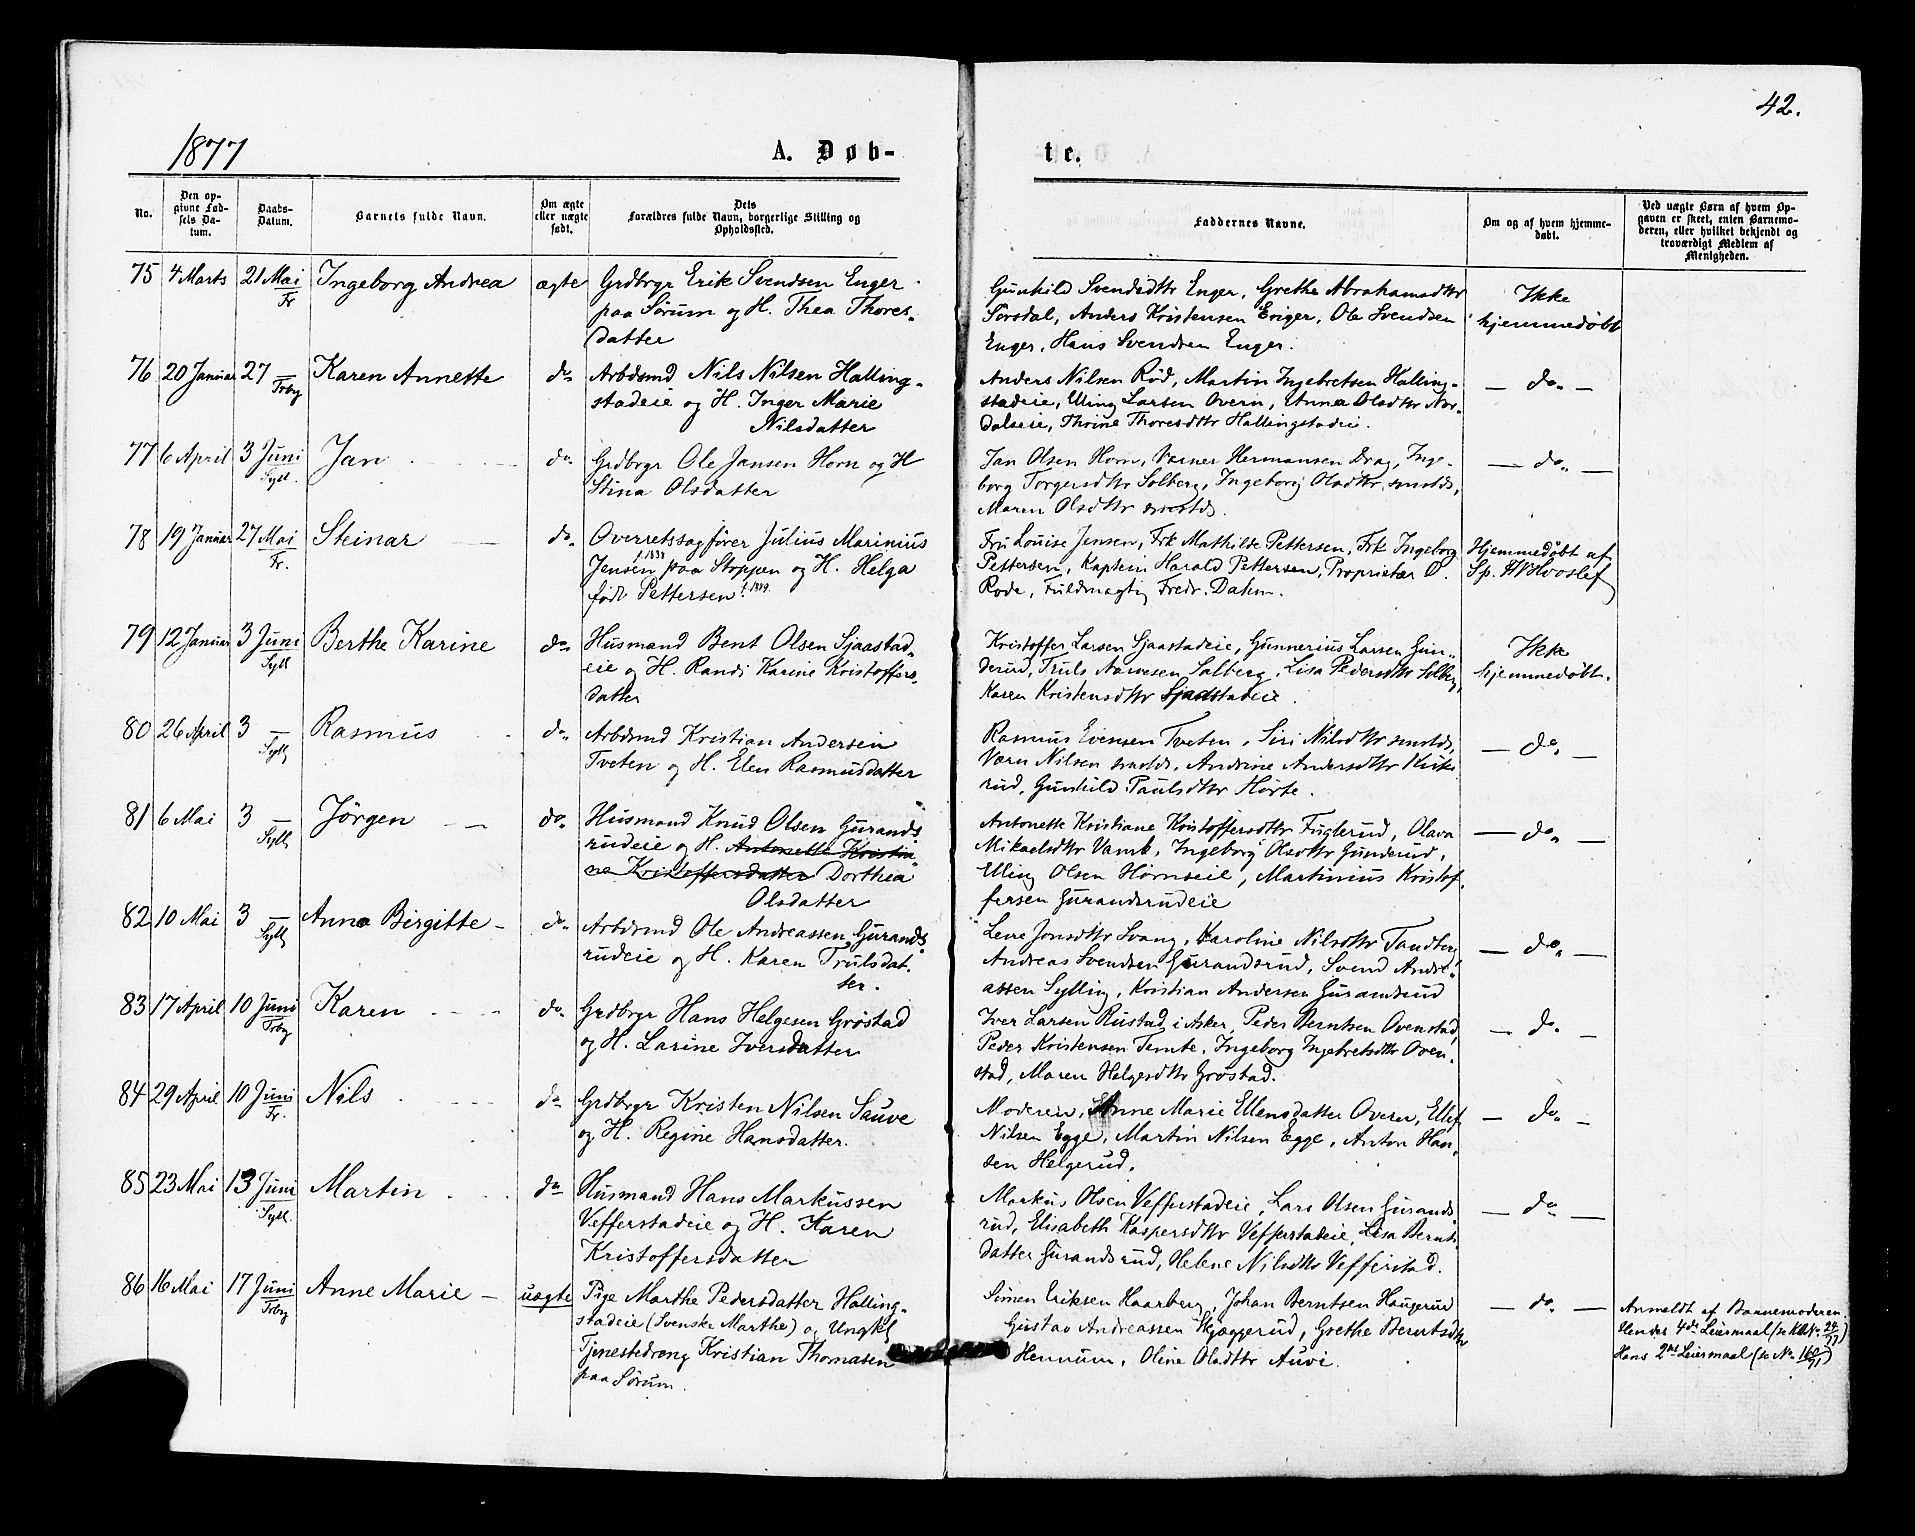 42.
1877
A. Døb-
te.
No.
Den op-
givne Fød-
sels Da-
tum.
Daabs-
Datum.
Barnets fulde Navn.
Om ægte
eller uægte
født.
Dets
Forældres fulde Navn, borgerlige Stilling og
Opholdssted.
Faddernes Navne.
Om og af hvem hjemme-
døbt.
Ved uægte Børn af hvem Op-
gaven er skeet, enten Barnemo-
deren, eller hvilket bekjendt og
troværdigt Medlem af
Menigheden.
75 4 Marts 21 Mai Ingeborg Andrea ægte Grdbrgr Erik Svendsen Enger
Fr
paa Sørum og H. Thea Thores-
datter
Gunhild Svendsdtr Enger, Grethe Abrahamsdtr
Sørsdal, Anders Kristensen Enger, Ole Svendsen
Enger, Hans Svendsen Enger.
Ikke
hjemmedøbt
76 20 Januar 27 — Karen Annette do. Arbdsmd Nils Nilsen Halling-
Trby
stadeie og H. Inger Marie
Nilsdatter
Anders Nilsen Rød, Martin Ingebretsen Halling-
stadeie, Elling Larsen Overn, Anne Olsdtr Nor-
dalseie, Thrine Thoresdtr Hallingstadeie.
— do. —
77 6 April 3 Juni Jan do. Grdbrgr Ole Jansen Horn og H
Syll.
Stina Olsdatter
Jan Olsen Horn, Varner Hermansen Drag, Inge-
borg Torgersdtr Solberg, Ingeborg Olsdtr smstds,
Maren Olsdtr smstds.
— do. —
78 19 Januar 27 Mai Steinar — do. Overretssagfører Julius Marinius
Fr.
Jensen paa Stoppen og H. Helga
født Pettersen
Fru Louise Jensen, Frk Mathilde Pettersen, Frk Ingeborg
Pettersen, Kaptein Harald Pettersen, Proprietær O.
Rode, Fuldmægtig Fredr. Dahm.
Hjemmedøbt af
Sp. Hvoslef
79 12 Januar 3 Juni Berthe Karine do. Husmand Bent Olsen Sjaastad-
Syll
eie og H. Randi Karine Kristoffers-
datter
Kristoffer Larsen Sjaastadeie, Gunnerius Larsen Gun-
derud, Truls Narvesen Solberg, Lisa Pedersdtr Solberg,
Karen Kristensdtr Sjaastadeie.
Ikke
hjemmedøbt.
80 26 April 3 — Rasmus do. Arbdsmd Kristian Andersen
Syll
Tveten og H. Elen Rasmusdatter
Rasmus Evensen Tveten, Siri Nilsdtr smstds,
Varn Nilsen smstds, Andrine Andersdtr Kirke
rud, Gunhild Paulsdtr Hørte.
— do. —
81 6 Mai 3 — Jørgen — do. Husmand Knud Olsen Gurands
Syll
rudeie og H. Antonette Kristia-
ne Kristoffersdatter Dorthea
Olsdatter
Antonette Kristiane Kristoffersdtr Fuglerud, Olava
Mikaelsdtr Vamb, Ingeborg Olsdtr Gunderud,
Elling Olsen Hornseie, Martinius Kristof-
fersen Gurandsrudeie
— do. —
82 10 Mai 3 — Anna Birgitte — do. Arbdsmd Ole Andreassen Gurands
Syll
rudeie og H. Karen Trulsdat-
ter.
Lene Jonsdtr Svang, Karoline Nilsdtr Tandberg
Andreas Svendsen Gurandsrud, Svend Andre-
assen Sylling, Kristian Andersen Gurandsrud
— do. —
83 17 April 10 Juni Karen do. Grdbrgr Hans Helgesen Grøstad
Trby
og H. Larine Iversdatter
Iver Larsen Rustad i Asker, Peder Berntsen Ovenstad,
Peder Kristensen Temte, Ingeborg Ingebretsdtr Oven-
stad, Maren Helgesdtr Grøstad.
— do. —
84 29 April 10 Juni Nils do. Grdbrgr Kristen Nilsen Sauve
Fr.
og H. Regine Hansdatter.
Moderen, Anne Marie Ellensdatter Overn, Ellef
Nilsen Egge, Martin Nilsen Egge, Anton Han-
sen Helgerud.
— do. —
85 23 Mai 13 Juni Martin do. Husmand Hans Markussen
Syll.
Vefferstadeie og H. Karen
Kristoffersdatter
Markus Olsen Vefferstadeie, Lars Olsen Gurands
rud, Elisabeth Kaspersdtr Vefferstadeie, Lisa Bernts
datter Gurandsrud, Helene Nilsdtr Vefferstad.
— do. —
86 16 Mai 17 Juni Anne Marie — uægte Pige Marthe Pedersdatter Halling-
Trby
stadeie (Svenske Marthe) og Ungkl
Tjenestedreng Kristian Thomasen
paa Sørum.
Simen Eriksen Haarberg, Johan Berntsen Haugerud
Gustav Andreassen Skjæggerud, Grethe Berntsdtr
Hennum, Oline Olsdtr Auvi.
— do. —
Anmeldt af Barnemoderen.
Hendes 4de Leiermaal (se
Hans 2det Leiermaal (se No.